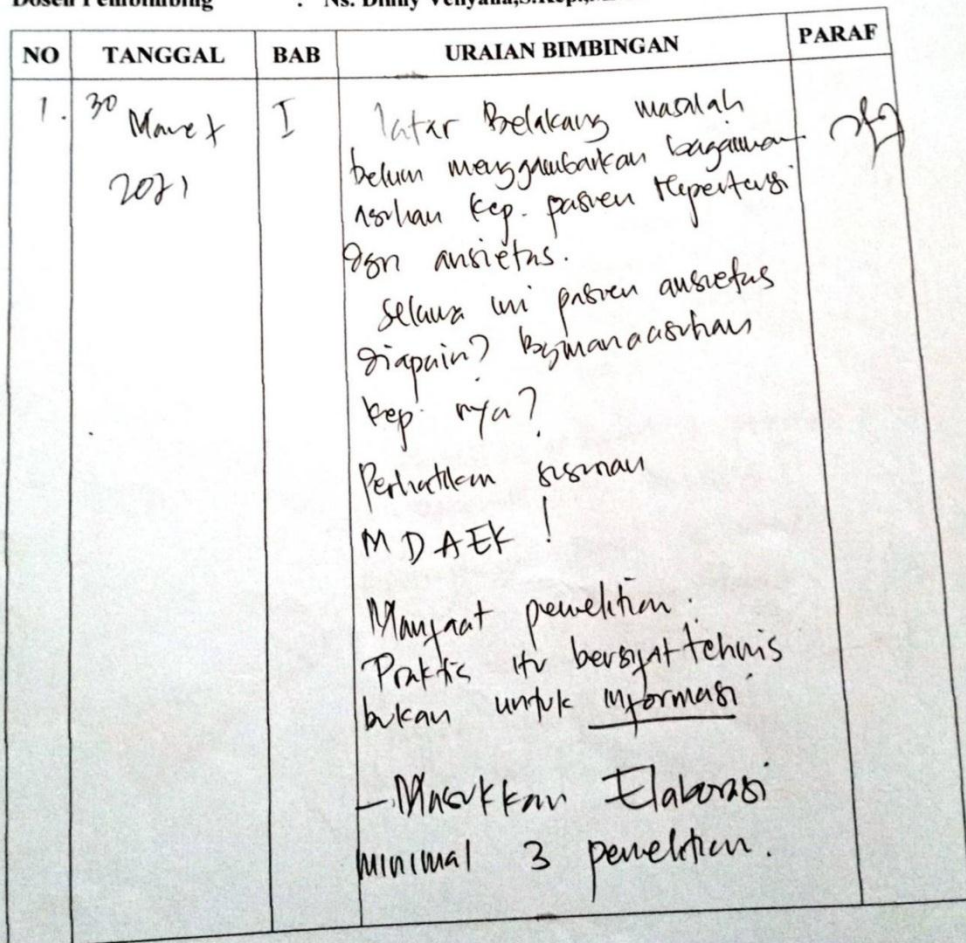 Dosen Pembimbing : Ns. Dinny
NO TANGGAL BAB URAIAN BIMBINGAN PARAF
1. 30 Maret 2021 I latar Belakang masalah
belum menggambarkan bagaiman
asuhan kep. pasien Hipertensi
dgn ansietas.
Selama ini pasien ansietas
diapain? bgmana asuhan
kep nya?
Perhatikan susunan
MDAEK!
Manfaat penelitian.
Praktis itu bersifat tehnis
bukan untuk informasi
- Masukkan Elaborasi
minimal 3 penelitian.